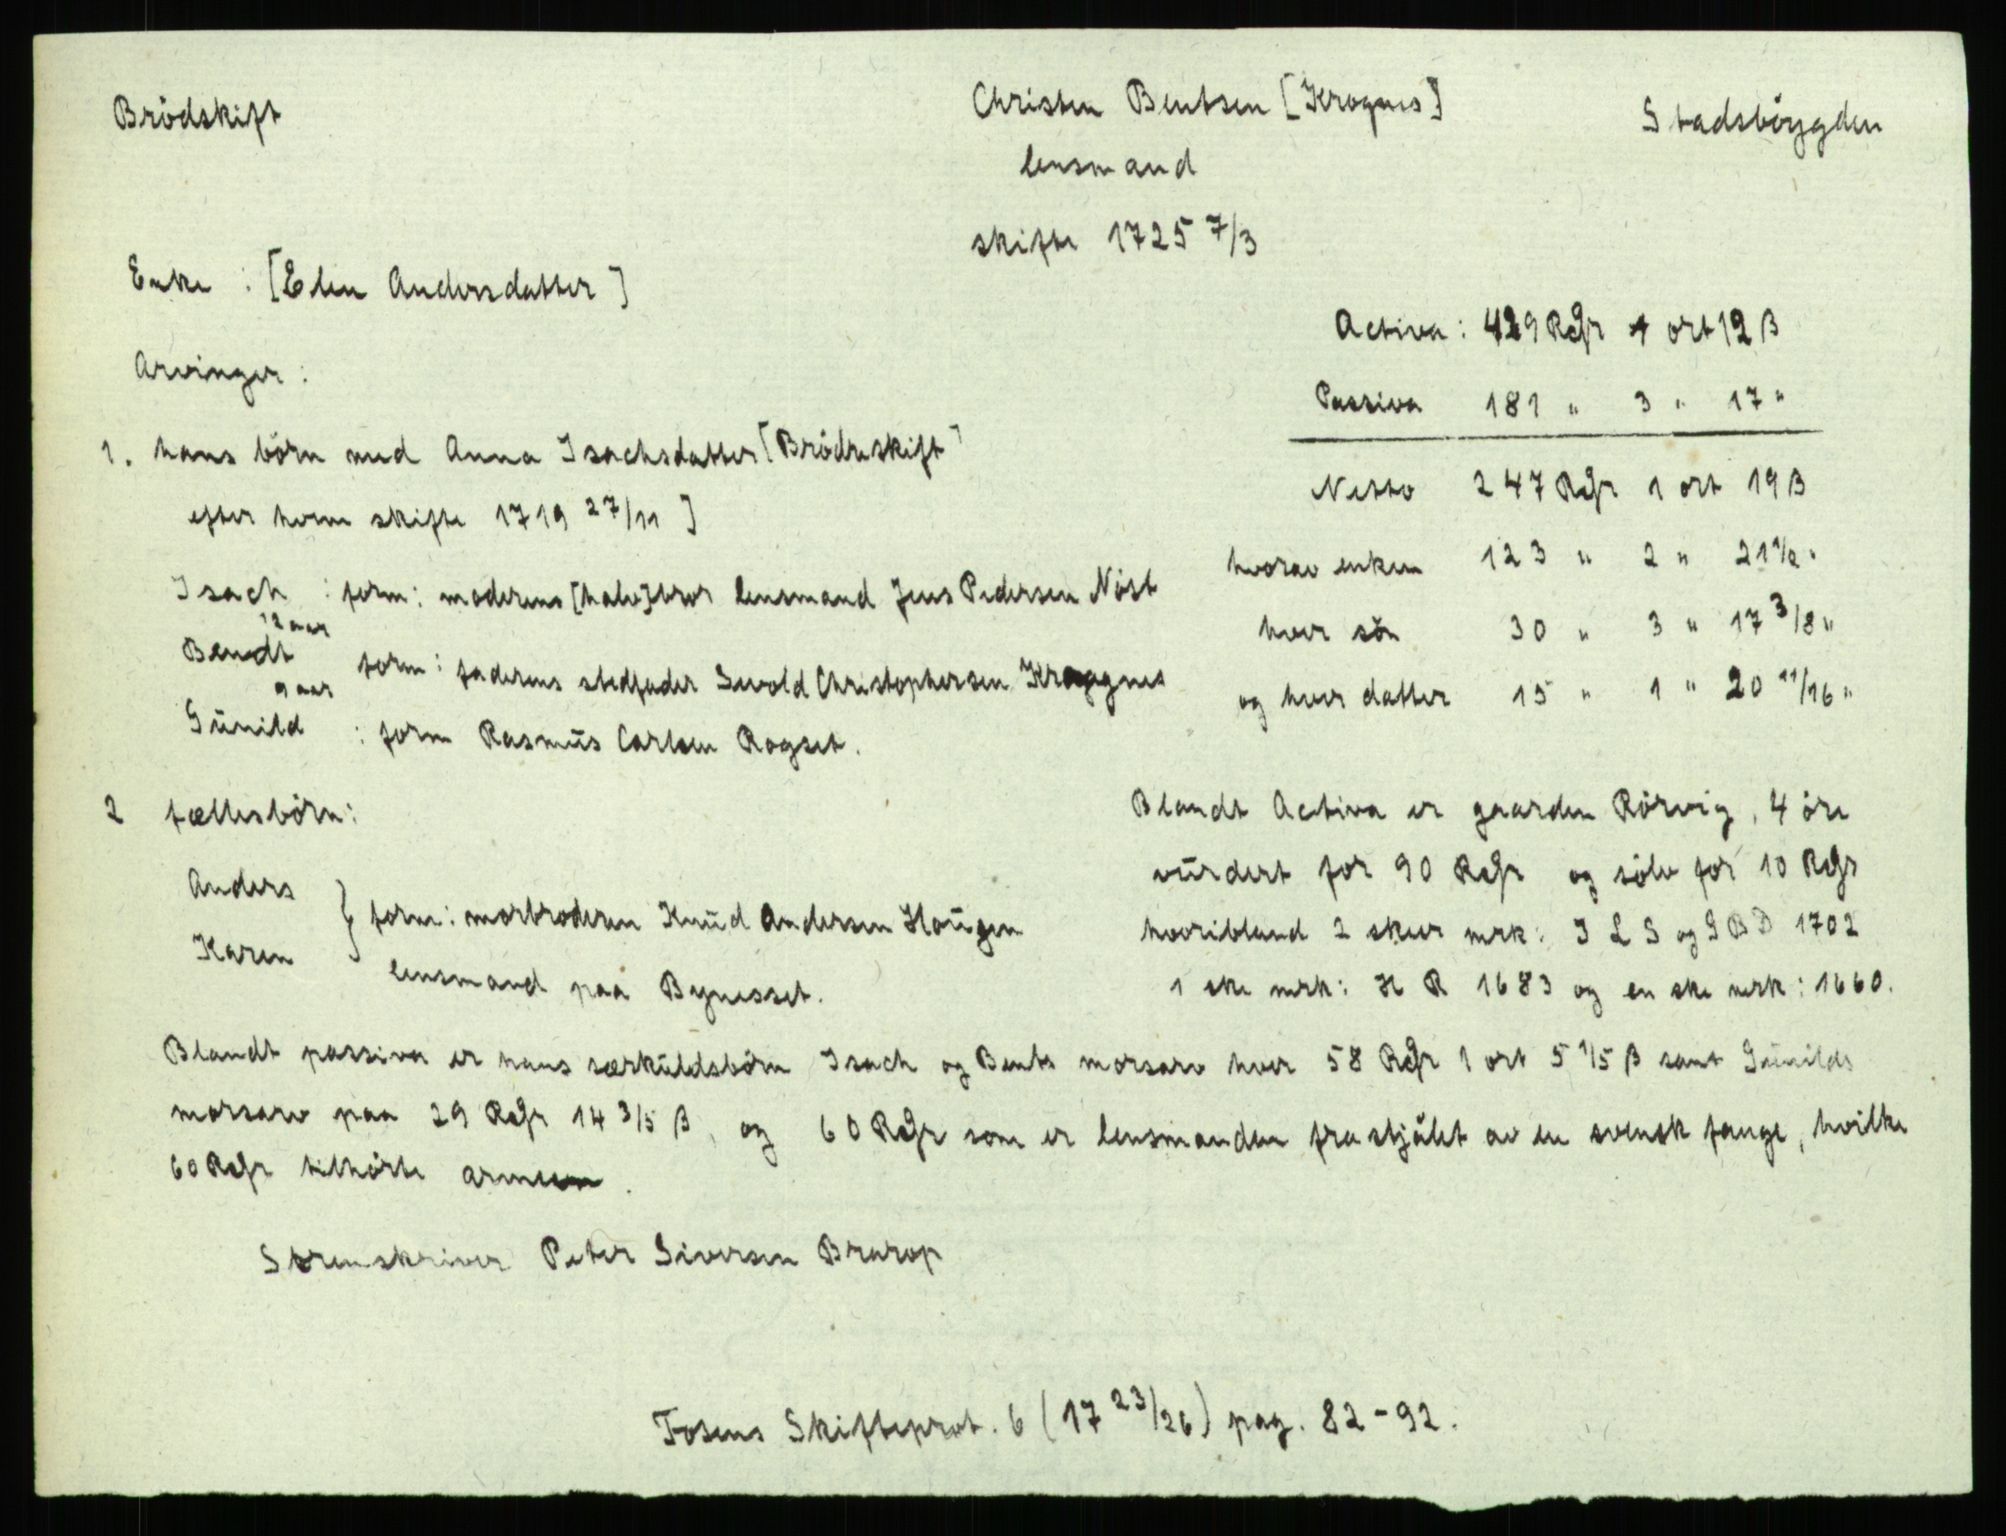 Brödskift
Christen Bentsen [Krognes]
Stadsböygden
lensmand
skifte 1725 7/3
Enke : [Elen Andersdatter]
Activa : 429 Rdr 1 ort 12 β
Arvinger :
Passiva 181 " 3 " 17 "
1. hans börn med Anna Isachsdatter [Brödreskift
Netto 247 Rdr 1 ort 19 β
efter herne skifte 1719 27/11 ]
hvorav enken 123 " 2 " 21 1/2 "
Isach : form: moderens [halv]bror lensmand Jens Pedersen Nöst
12 aar
hver sön 30 " 3 " 17 3/8 "
Bendt form: faderens stedfader Sivold Christophersen Krogнes
9 aar
og hver datter 15 " 1 " 20 11/16 "
Günild : form Rasmüs Carlsen Rogset.
2 fællesbörn:
Blandt Activa er gaarden Rörvig, 4 öre
Anders
vürdert for 90 Rdr og sölv for 10 Rdr
} form: morbroderen Knüd Andersen Haügen
Karen
hvoribland 2 skeer mrk: I L S og I B D 1702
lensmand paa Bynesset.
1 ske mrk: H R 1683 og en ske merk: 1660.
Blandt passiva er hans særküldsbörn Isach og Bents morsarv hver 58 Rdr 1 ort 5 1/5 β samt Günilds
morsarv paa 29 Rdr 14 3/5 β, og 60 Rdr som er lensmanden frastjålet av en svensk fange, hvilke
60 Rdr tilhörte armeen.
Sorenskriver Peter Siversen Brarop
Fosens Skifteprot. 6 (17 23/26) pag. 82-92.